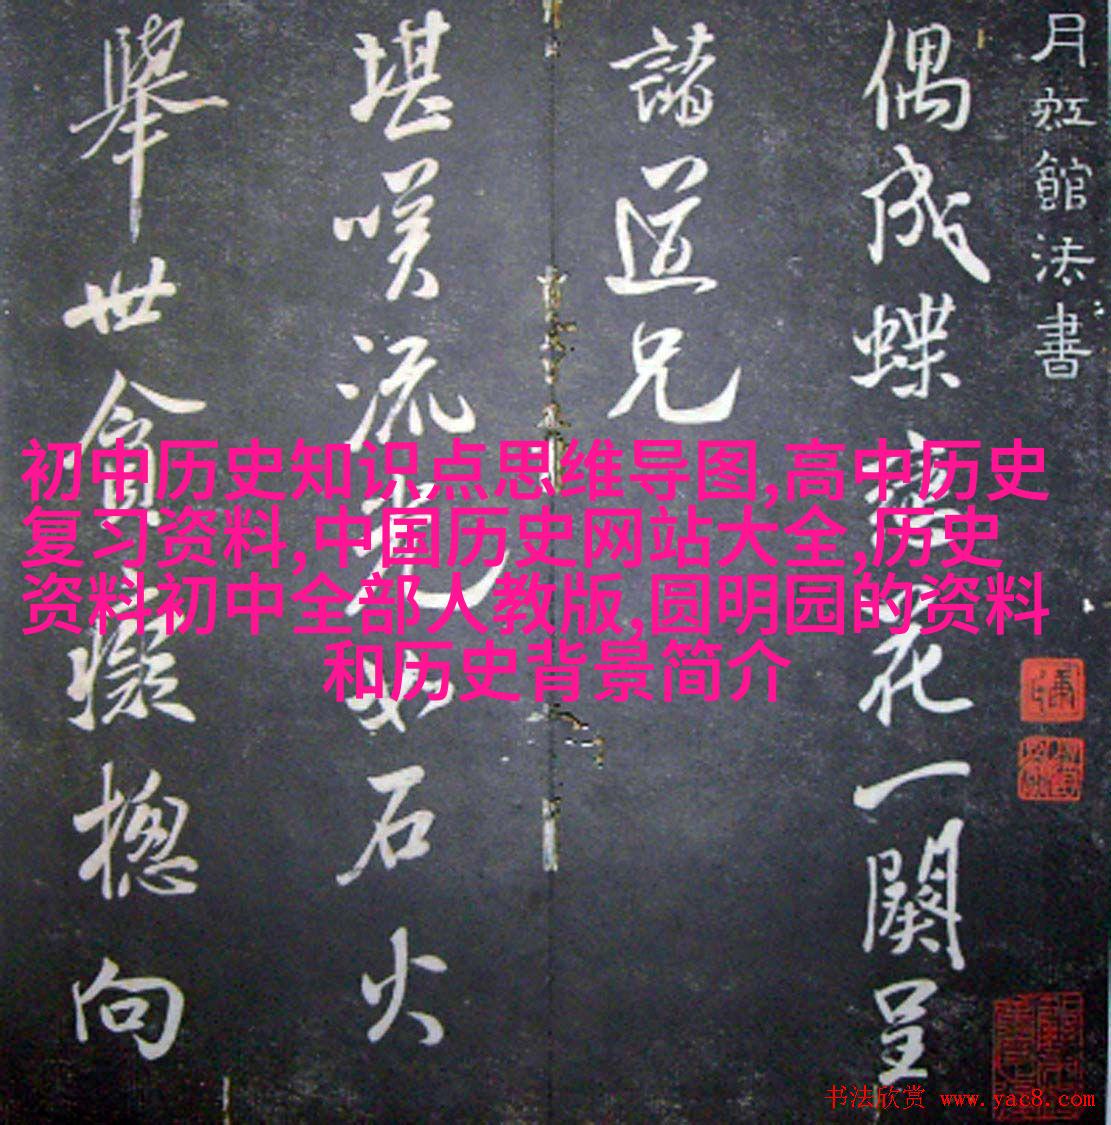 月虹館法書
偶成蝶戀花一闋呈
諸道兄
堪嘆流光如石火
舉世貪癡摠向
初中历史知识点思维导图,高中历史
复习资料,中国历史网站大全,历史
资料初中全部人教版,圆明园的资料
和历史背景简介
书法欣赏 www.yac8.com